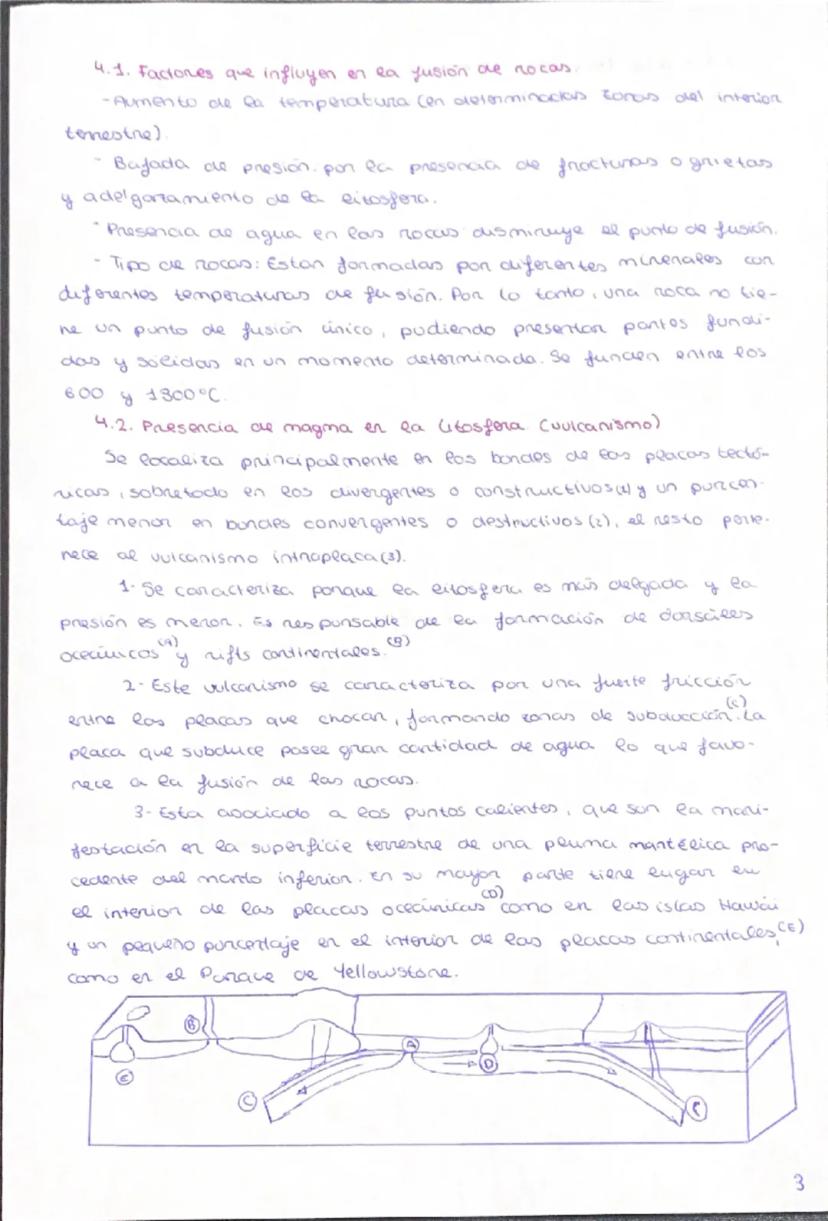 4.1. Factores que influyen en la fusión de rocas.
-Aumento de la temperatura (en determinadas zonas del interior
terrestre).
- Bajada de presión por la presencia de fracturas o grietas
y adelgazamiento de la litosfera.
- Presencia de agua en las rocas disminuye el punto de fusión.
- Tipo de rocas: Estan formadas por diferentes minerales con
diferentes temperaturas de fusión. Por lo tanto, una roca no tie-
ne un punto de fusión único, pudiendo presentar partes fundi-
das y sólidas en un momento determinado. Se funden entre los
600 y 1300°C.
4.2. Presencia de magma en la litosfera (vulcanismo)
Se localiza principalmente en los bordes de las placas tectó-
nicas, sobretodo en los divergentes o constructivos (1) y un porcen-
taje menor en bordes convergentes o destructivos (2), el resto perte-
nece al vulcanismo intraplaca (3).
1- Se caracteriza porque la litosfera es más delgada y la
presión es menor. Es responsable de la formación de dorsales
oceánicos (A) y rifts continentales. (B)
2- Este vulcanismo se caracteriza por una fuerte fricción
entre las placas que chocan, formando zonas de subducción. (C) La
placa que subduce posee gran cantidad de agua lo que favo-
rece a la fusión de las rocas.
3- Esta asociado a los puntos calientes, que son la mani-
festación en la superficie terrestre de una pluma mantélica pro-
cedente del manto inferior. En su mayor parte tiene lugar en
el interior de las placas oceánicas (D) como en las islas Hawái
y un pequeño porcentaje en el interior de las placas continentales, (E)
como en el Parque de Yellowstone.
B
A
D
E
C
C
3